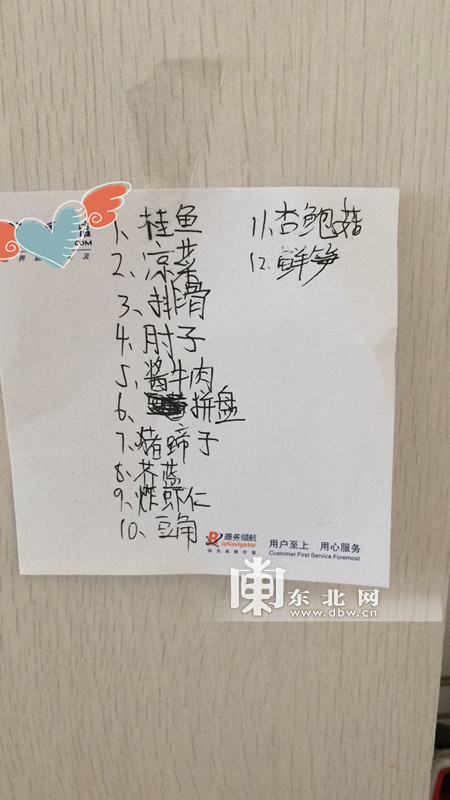 COM
1、桂鱼
2、凉菜
3、排骨
4、肘子
5、酱牛肉
6、拼盘
7、猪蹄子
8、芥蓝
9、炸虾仁
10、豆角
11、杏鲍菇
12、鲜笋
商务领航
eNavigator
用户至上 用心服务
Customer First Service Foremost
东北网
www.dbw.cn